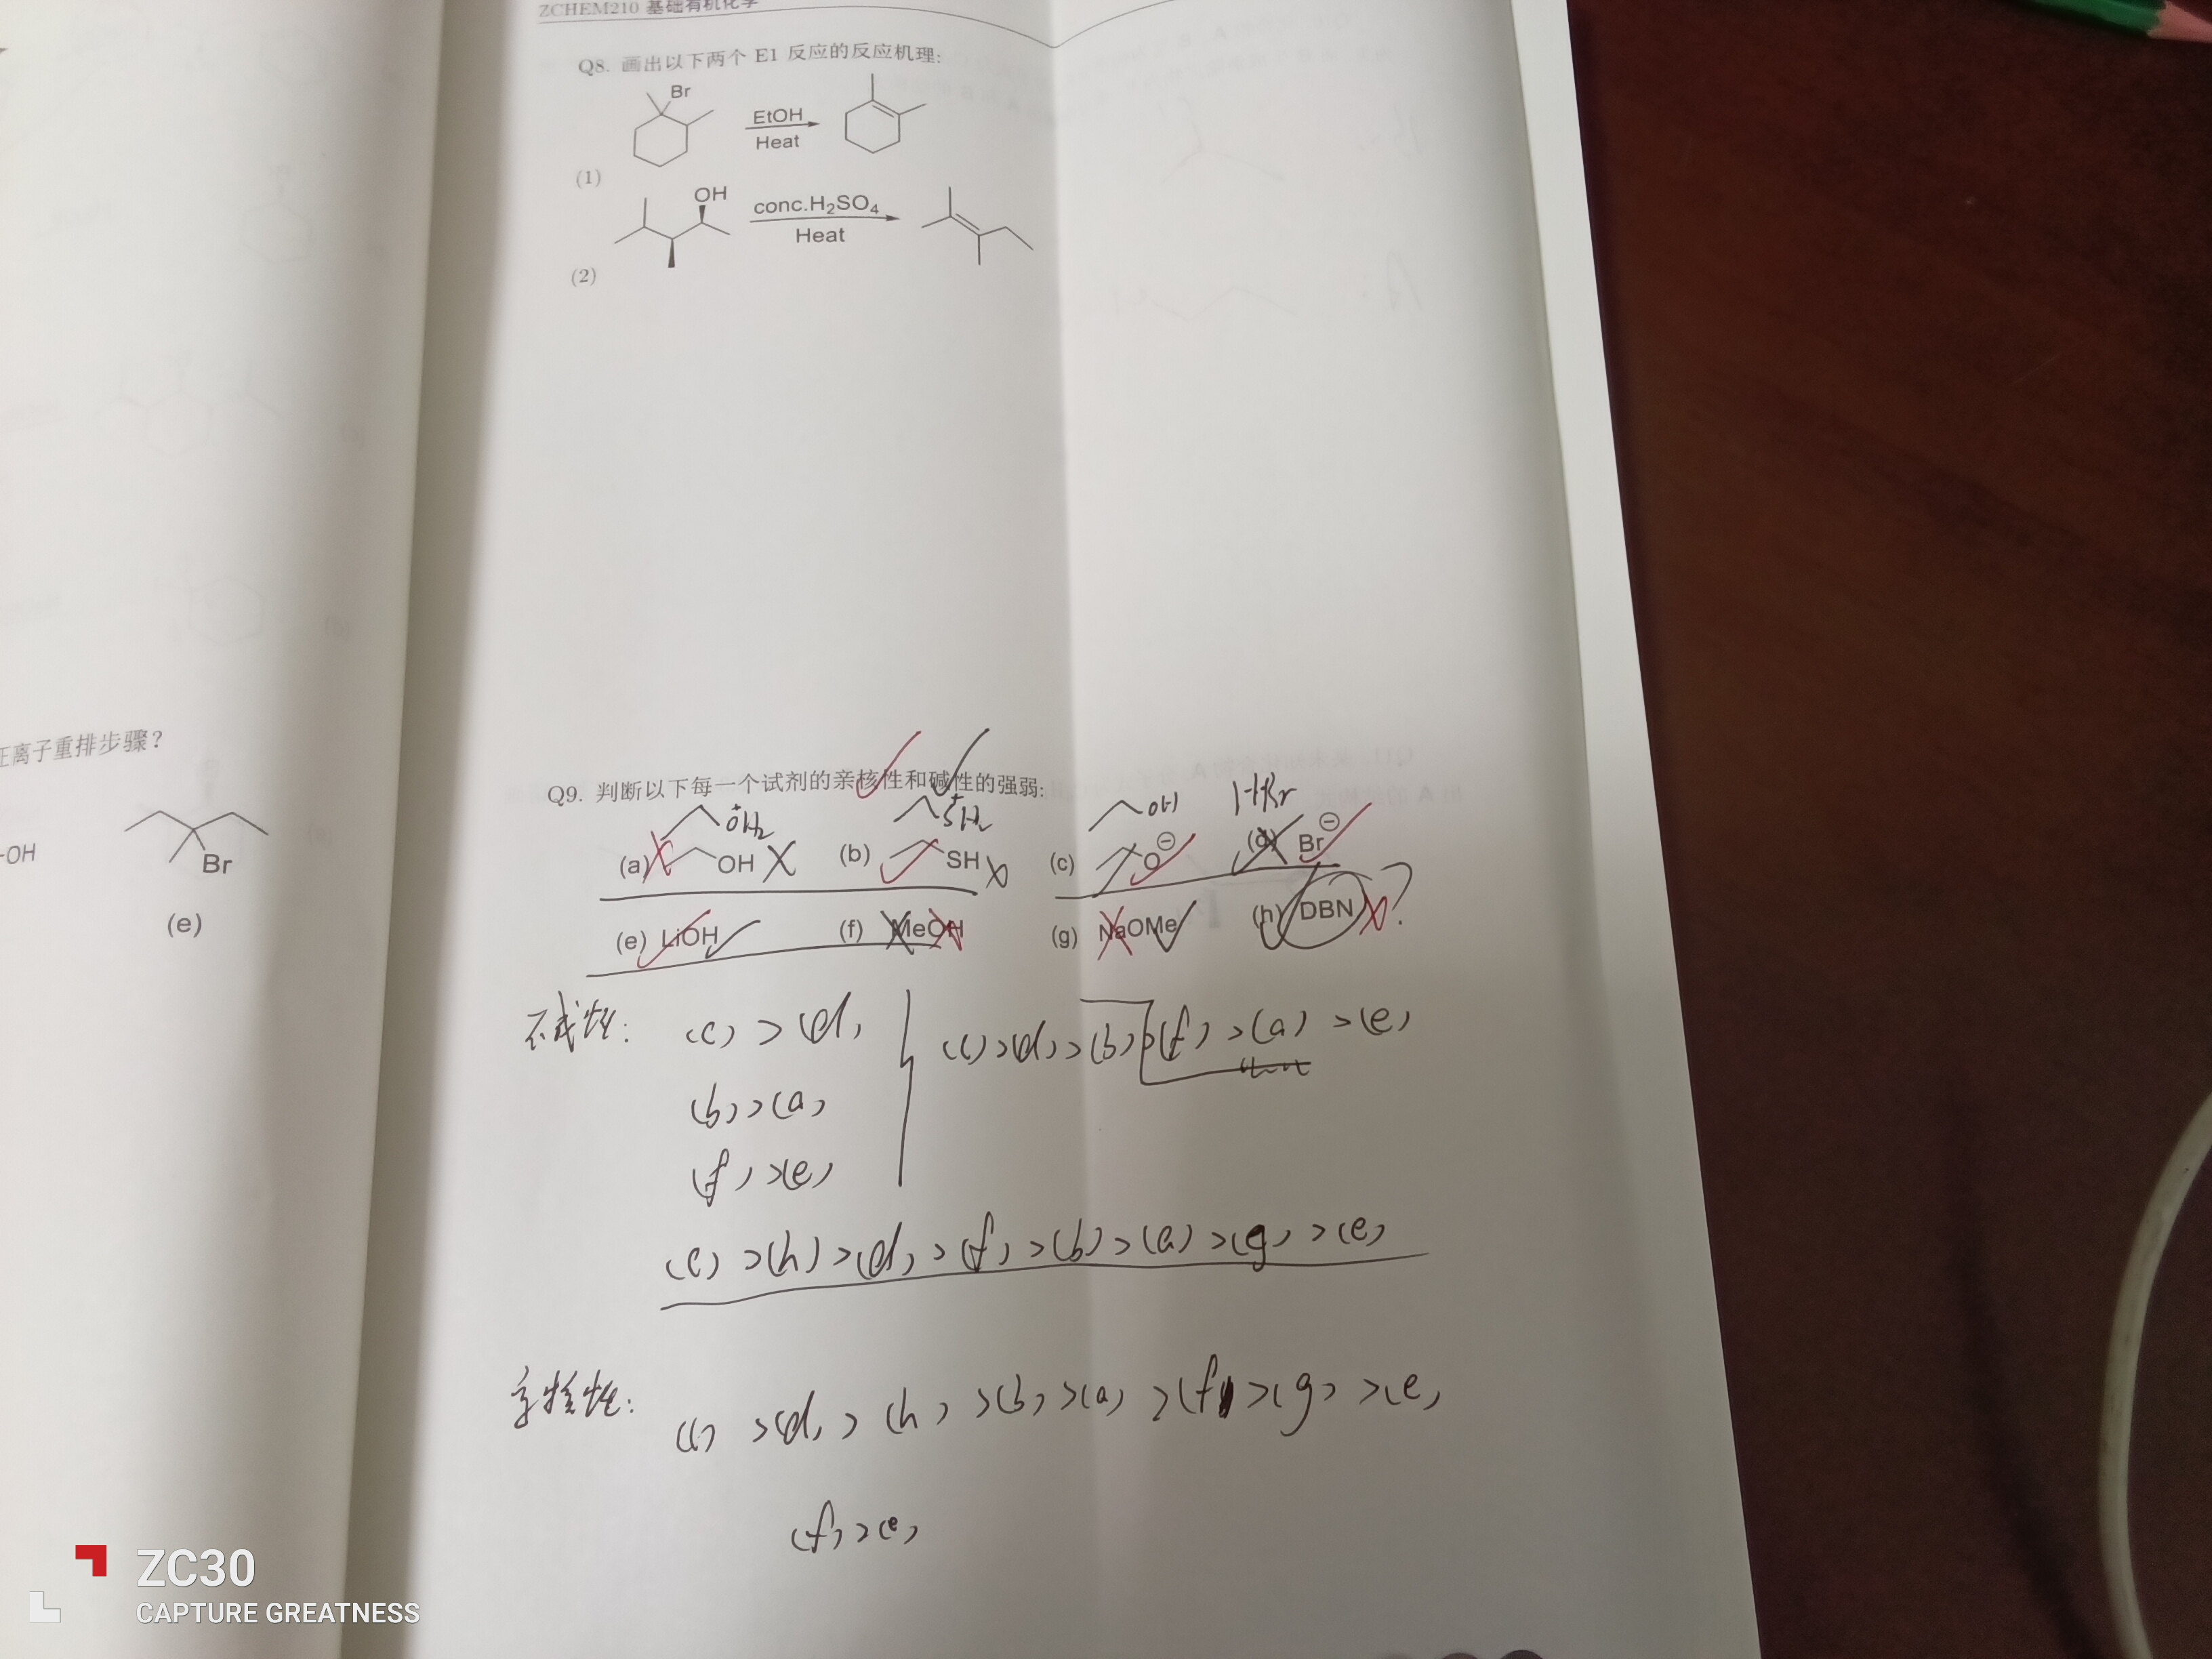 ZCHEM210 基础有机化学
Q8. 画出以下两个 E1 反应的反应机理:
Br
EtOH
Heat
(1)
OH
conc.H₂SO₄
Heat
(2)
正离子重排步骤?
-OH
Br
(e)
Q9. 判断以下每一个试剂的亲核性和碱性的强弱:
OH₂ SH₂ OH HBr
(a) OH (b) SH (c) O⊖ (d) Br⊖
(e) LiOH (f) MeOH (g) NaOMe (h) DBN ?
碱性: (c) > (d) (c) > (d) > (b) > (f) > (a) > (e)
(b) > (a)
(f) > (e)
(c) > (h) > (d) > (f) > (b) > (a) > (g) > (e)
亲核性: (c) > (d) > (h) > (b) > (a) > (f) > (g) > (e)
(f) > (e)
ZC30
CAPTURE GREATNESS